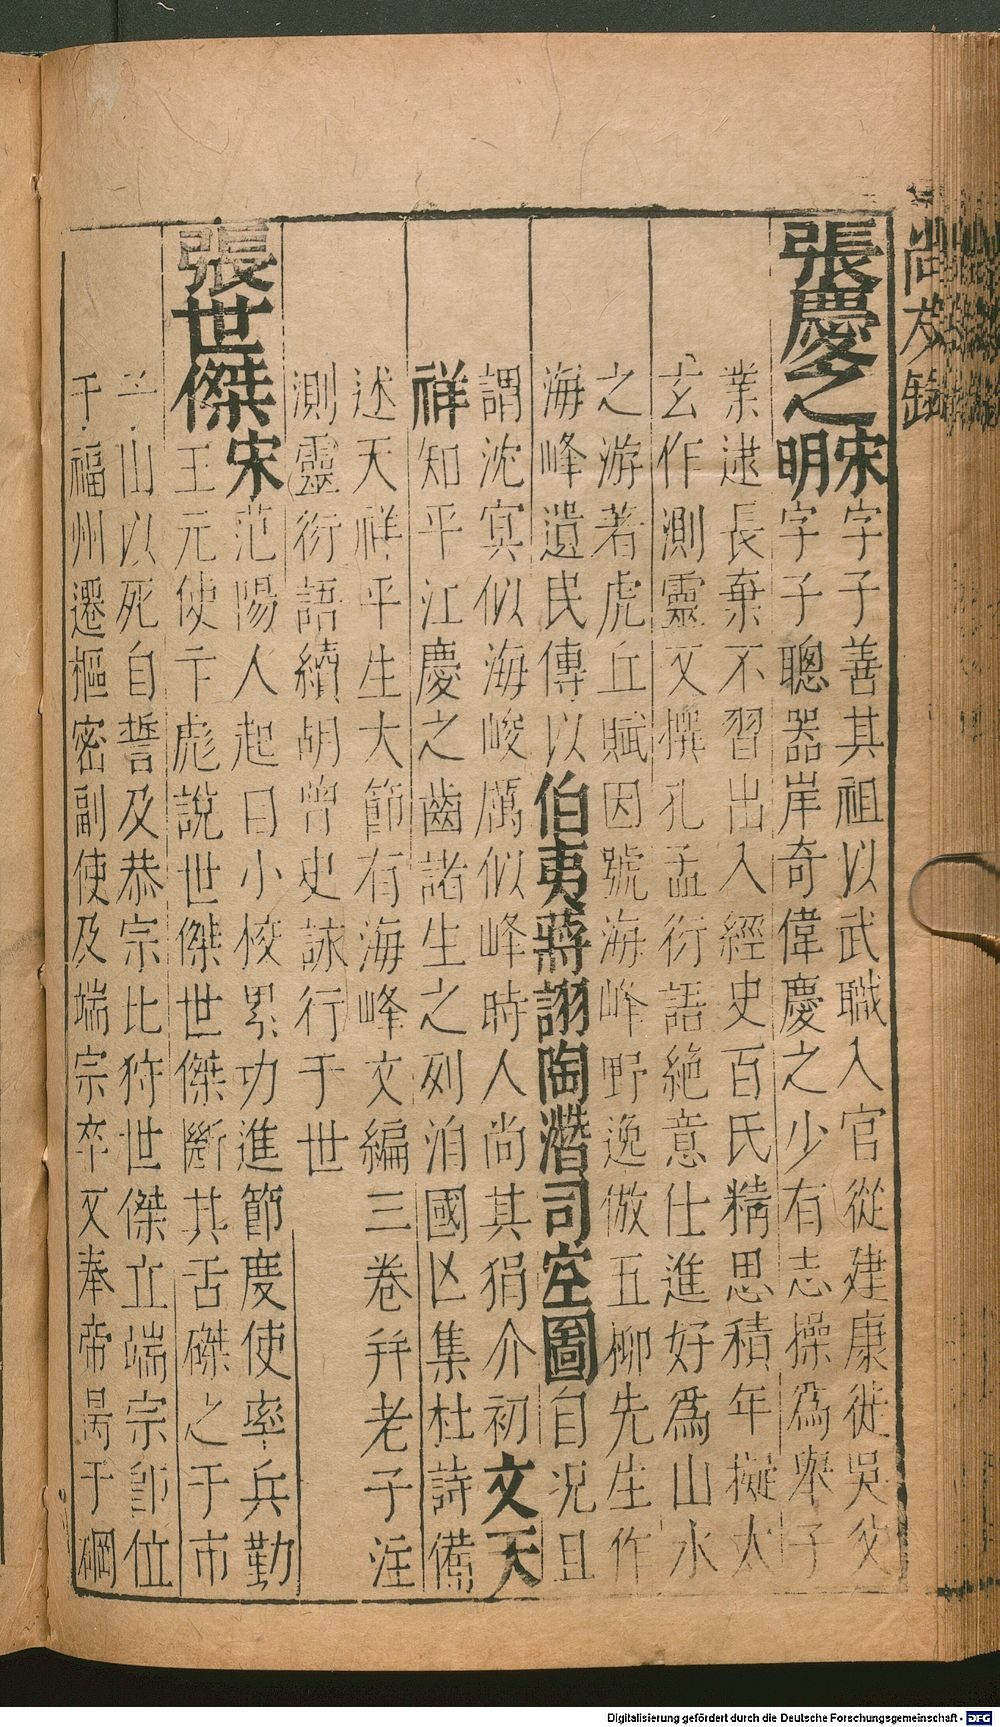 尚友錄
張慶之
宋字子善其祖以武職入官從建康徙吳父
明字子聰器岸奇偉慶之少有志操爲舉子
業逮長棄不習出入經史百氏精思積年擬太
玄作測靈又撰孔孟衍語絶意仕進好爲山水
之游著虎丘賦因號海峰野逸倣五柳先生作
海峰遺民傳以伯夷蔣詡陶潛司空圖自况且
謂沈寞似海峻厲似峰時人尚其狷介初文天
祥知平江慶之齒諸生之列洎國亾集杜詩備
述天祥平生大節有海峰文編三卷幷老子注
測靈衍語續胡曾史詠行于世
張世傑
宋范陽人起曰小校累功進節度使率兵勤
王元使卞彪說世傑世傑斷其舌磔之于市
山以死自誓及恭宗北狩世傑立端宗卽位
于福州遷樞密副使及端宗卒又奉帝昺于碙
Digitalisierung gefördert durch die Deutsche Forschungsgemeinschaft - DFG